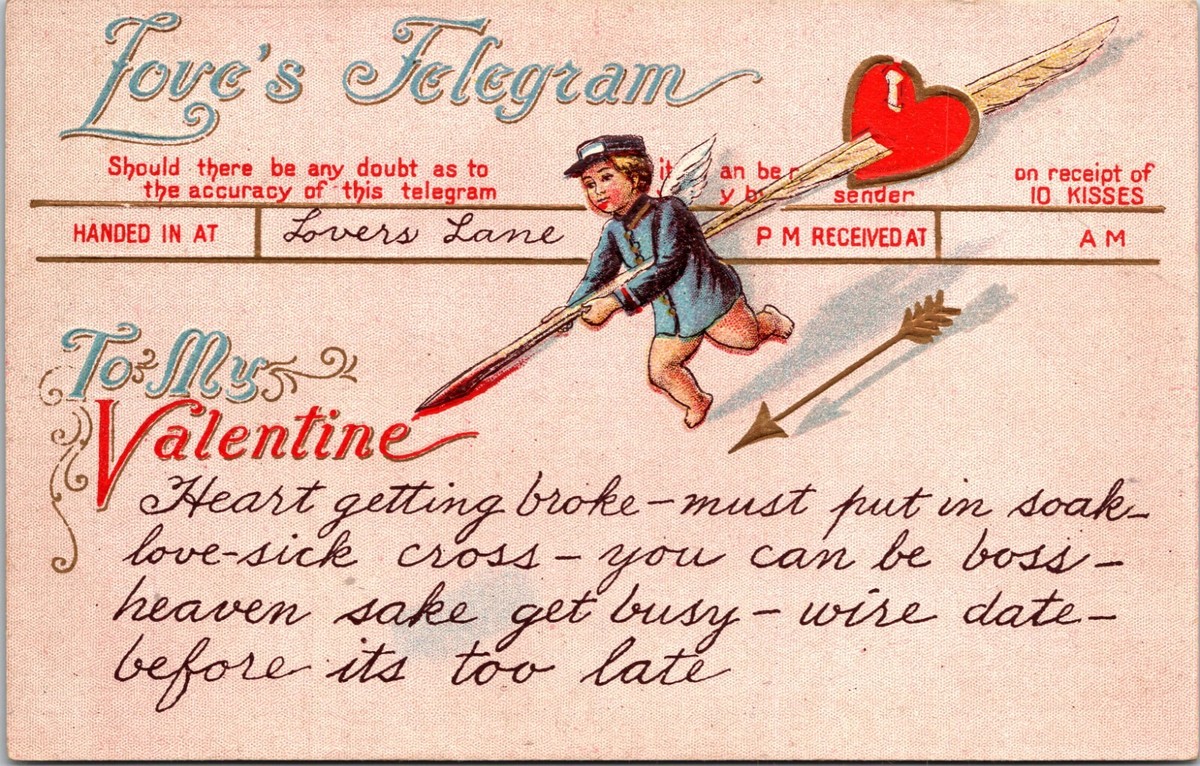 Love's Telegram
Should there be any doubt as to
the accuracy of this telegram
it an be
y b sender
on receipt of
10 KISSES
HANDED IN AT Lovers Lane P M RECEIVED AT A M
To My
Valentine
Heart getting broke – must put in soak –
love-sick cross – you can be boss –
heaven sake get busy – wire date –
before its too late